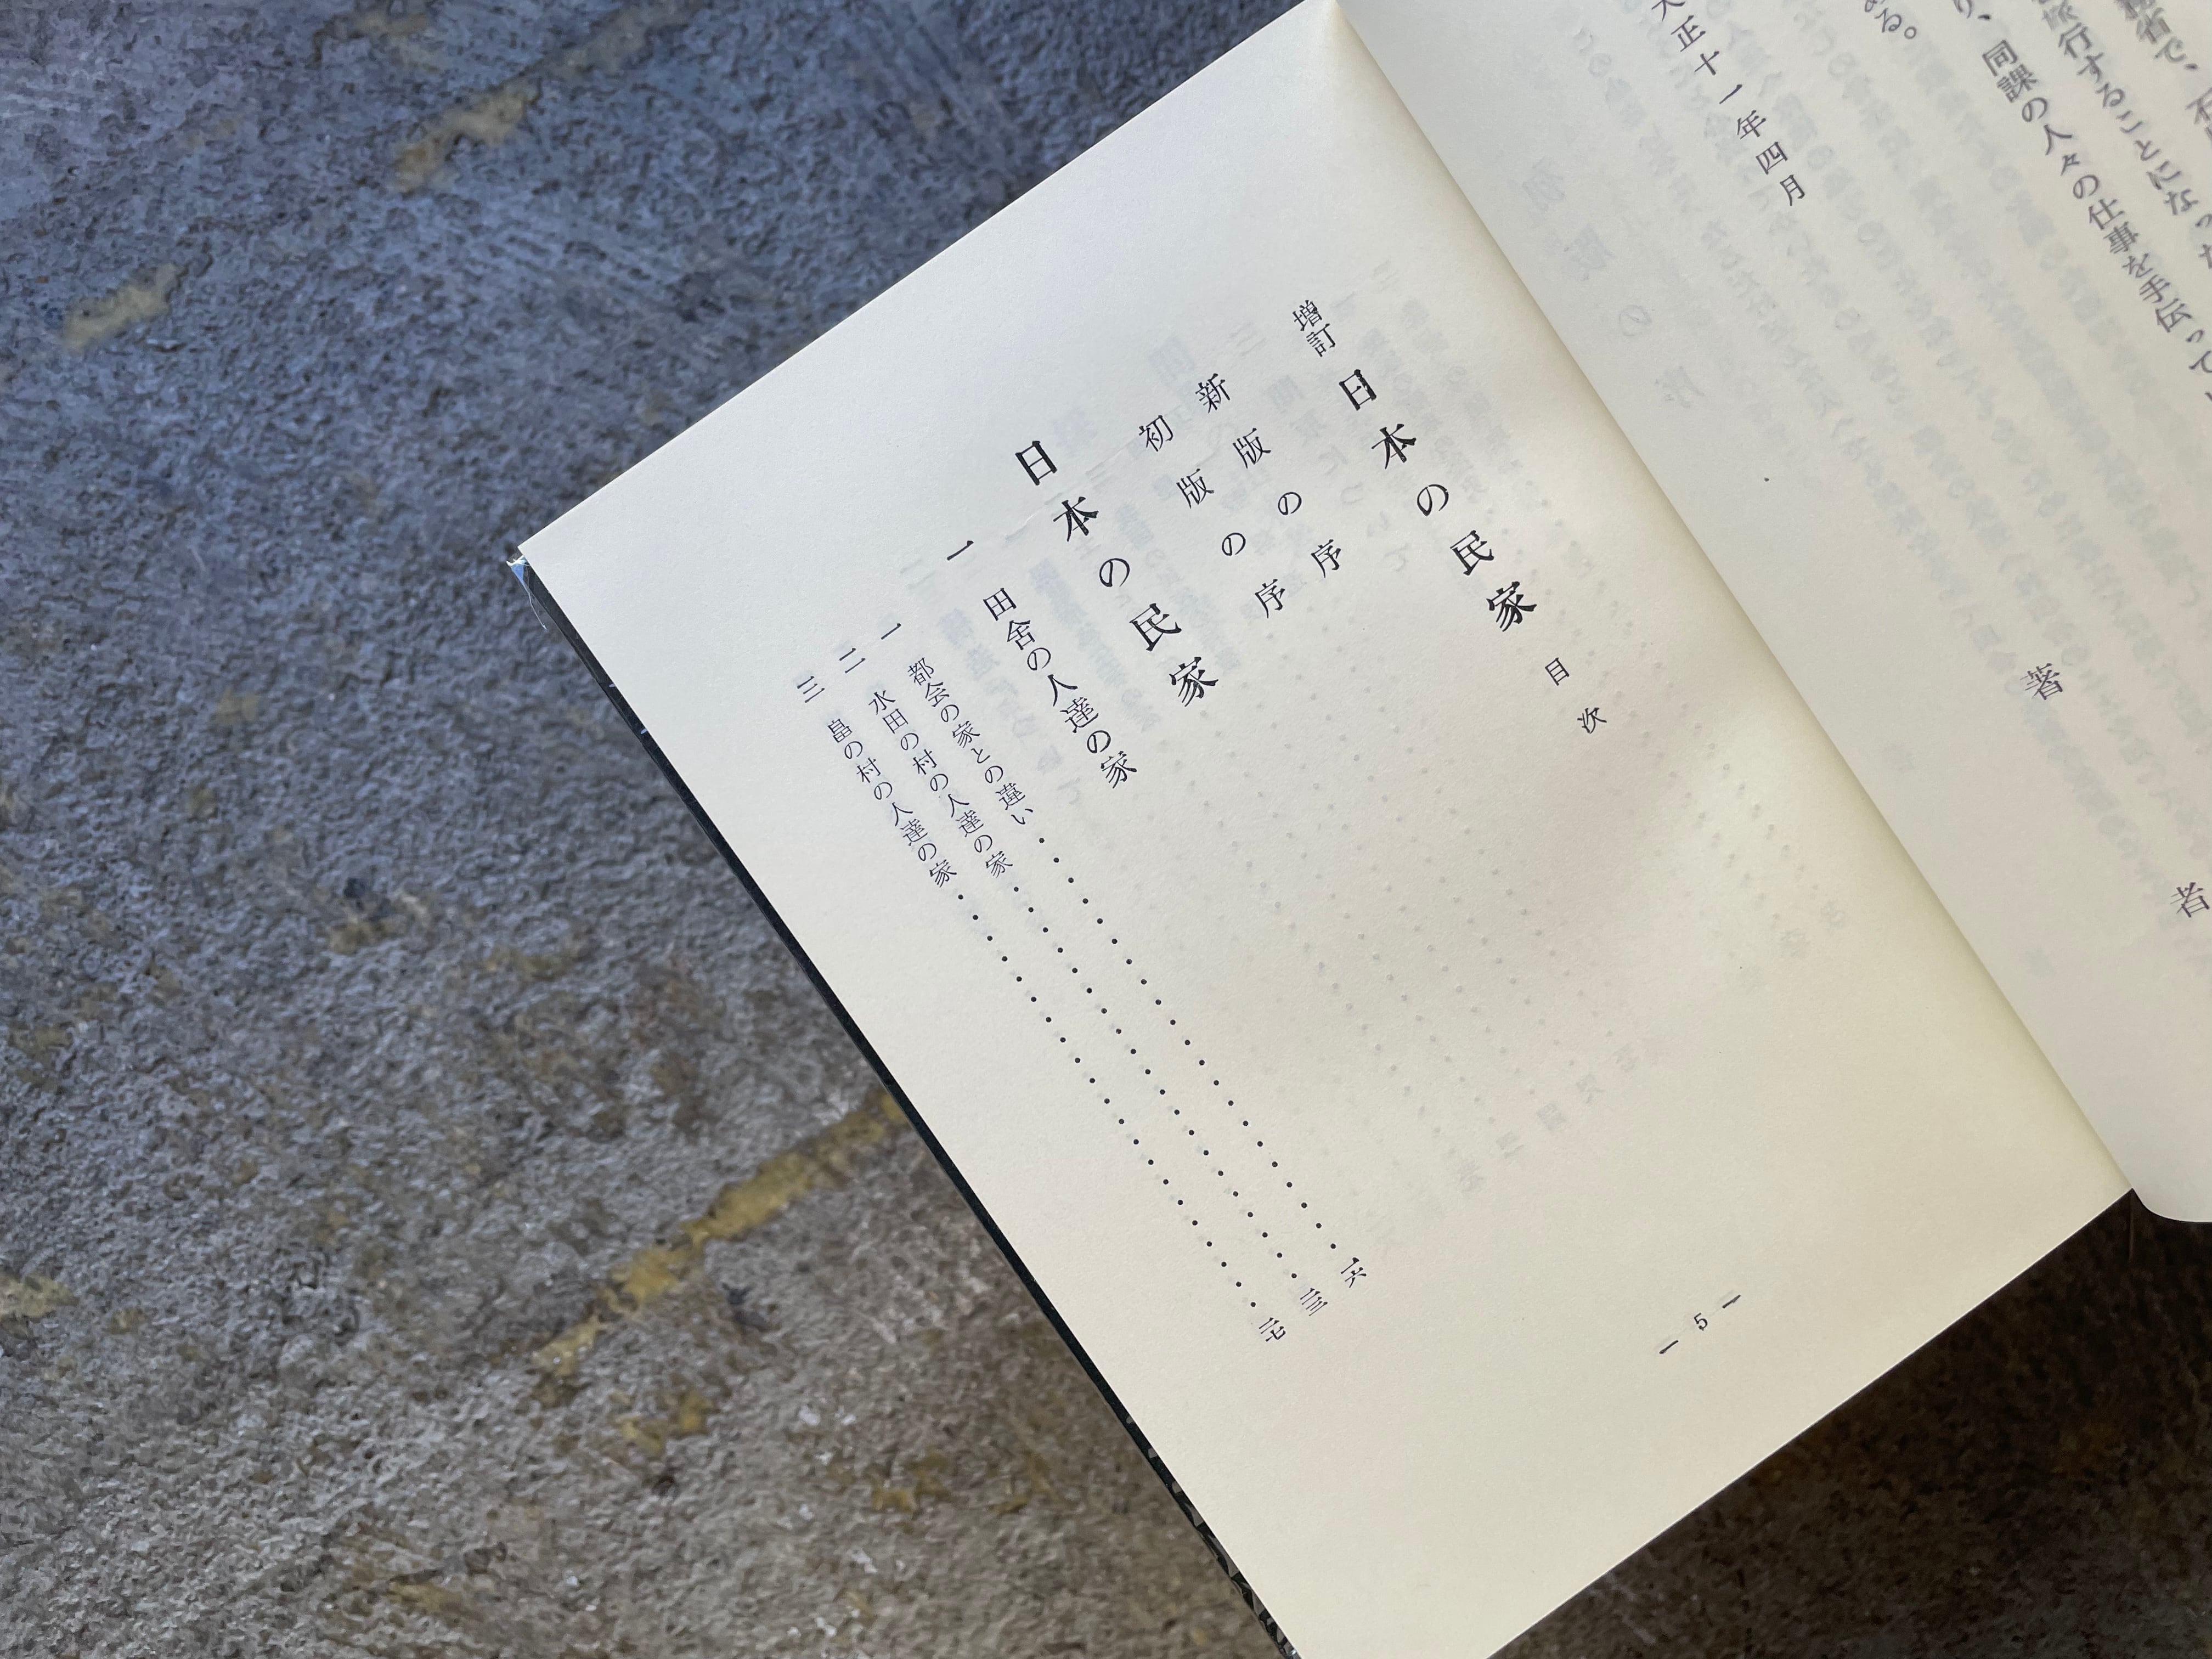 省で、石
旅行することになった
り、同課の人々の仕事を手伝って
ある。
大正十一年四月
著者
増訂 日本の民家 目次
新版の序
初版の序
日本の民家
一 田舎の人達の家
一 都会の家との違い……一六
二 水田の村の人達の家……二三
三 畠の村の人達の家……二七
— 5 —